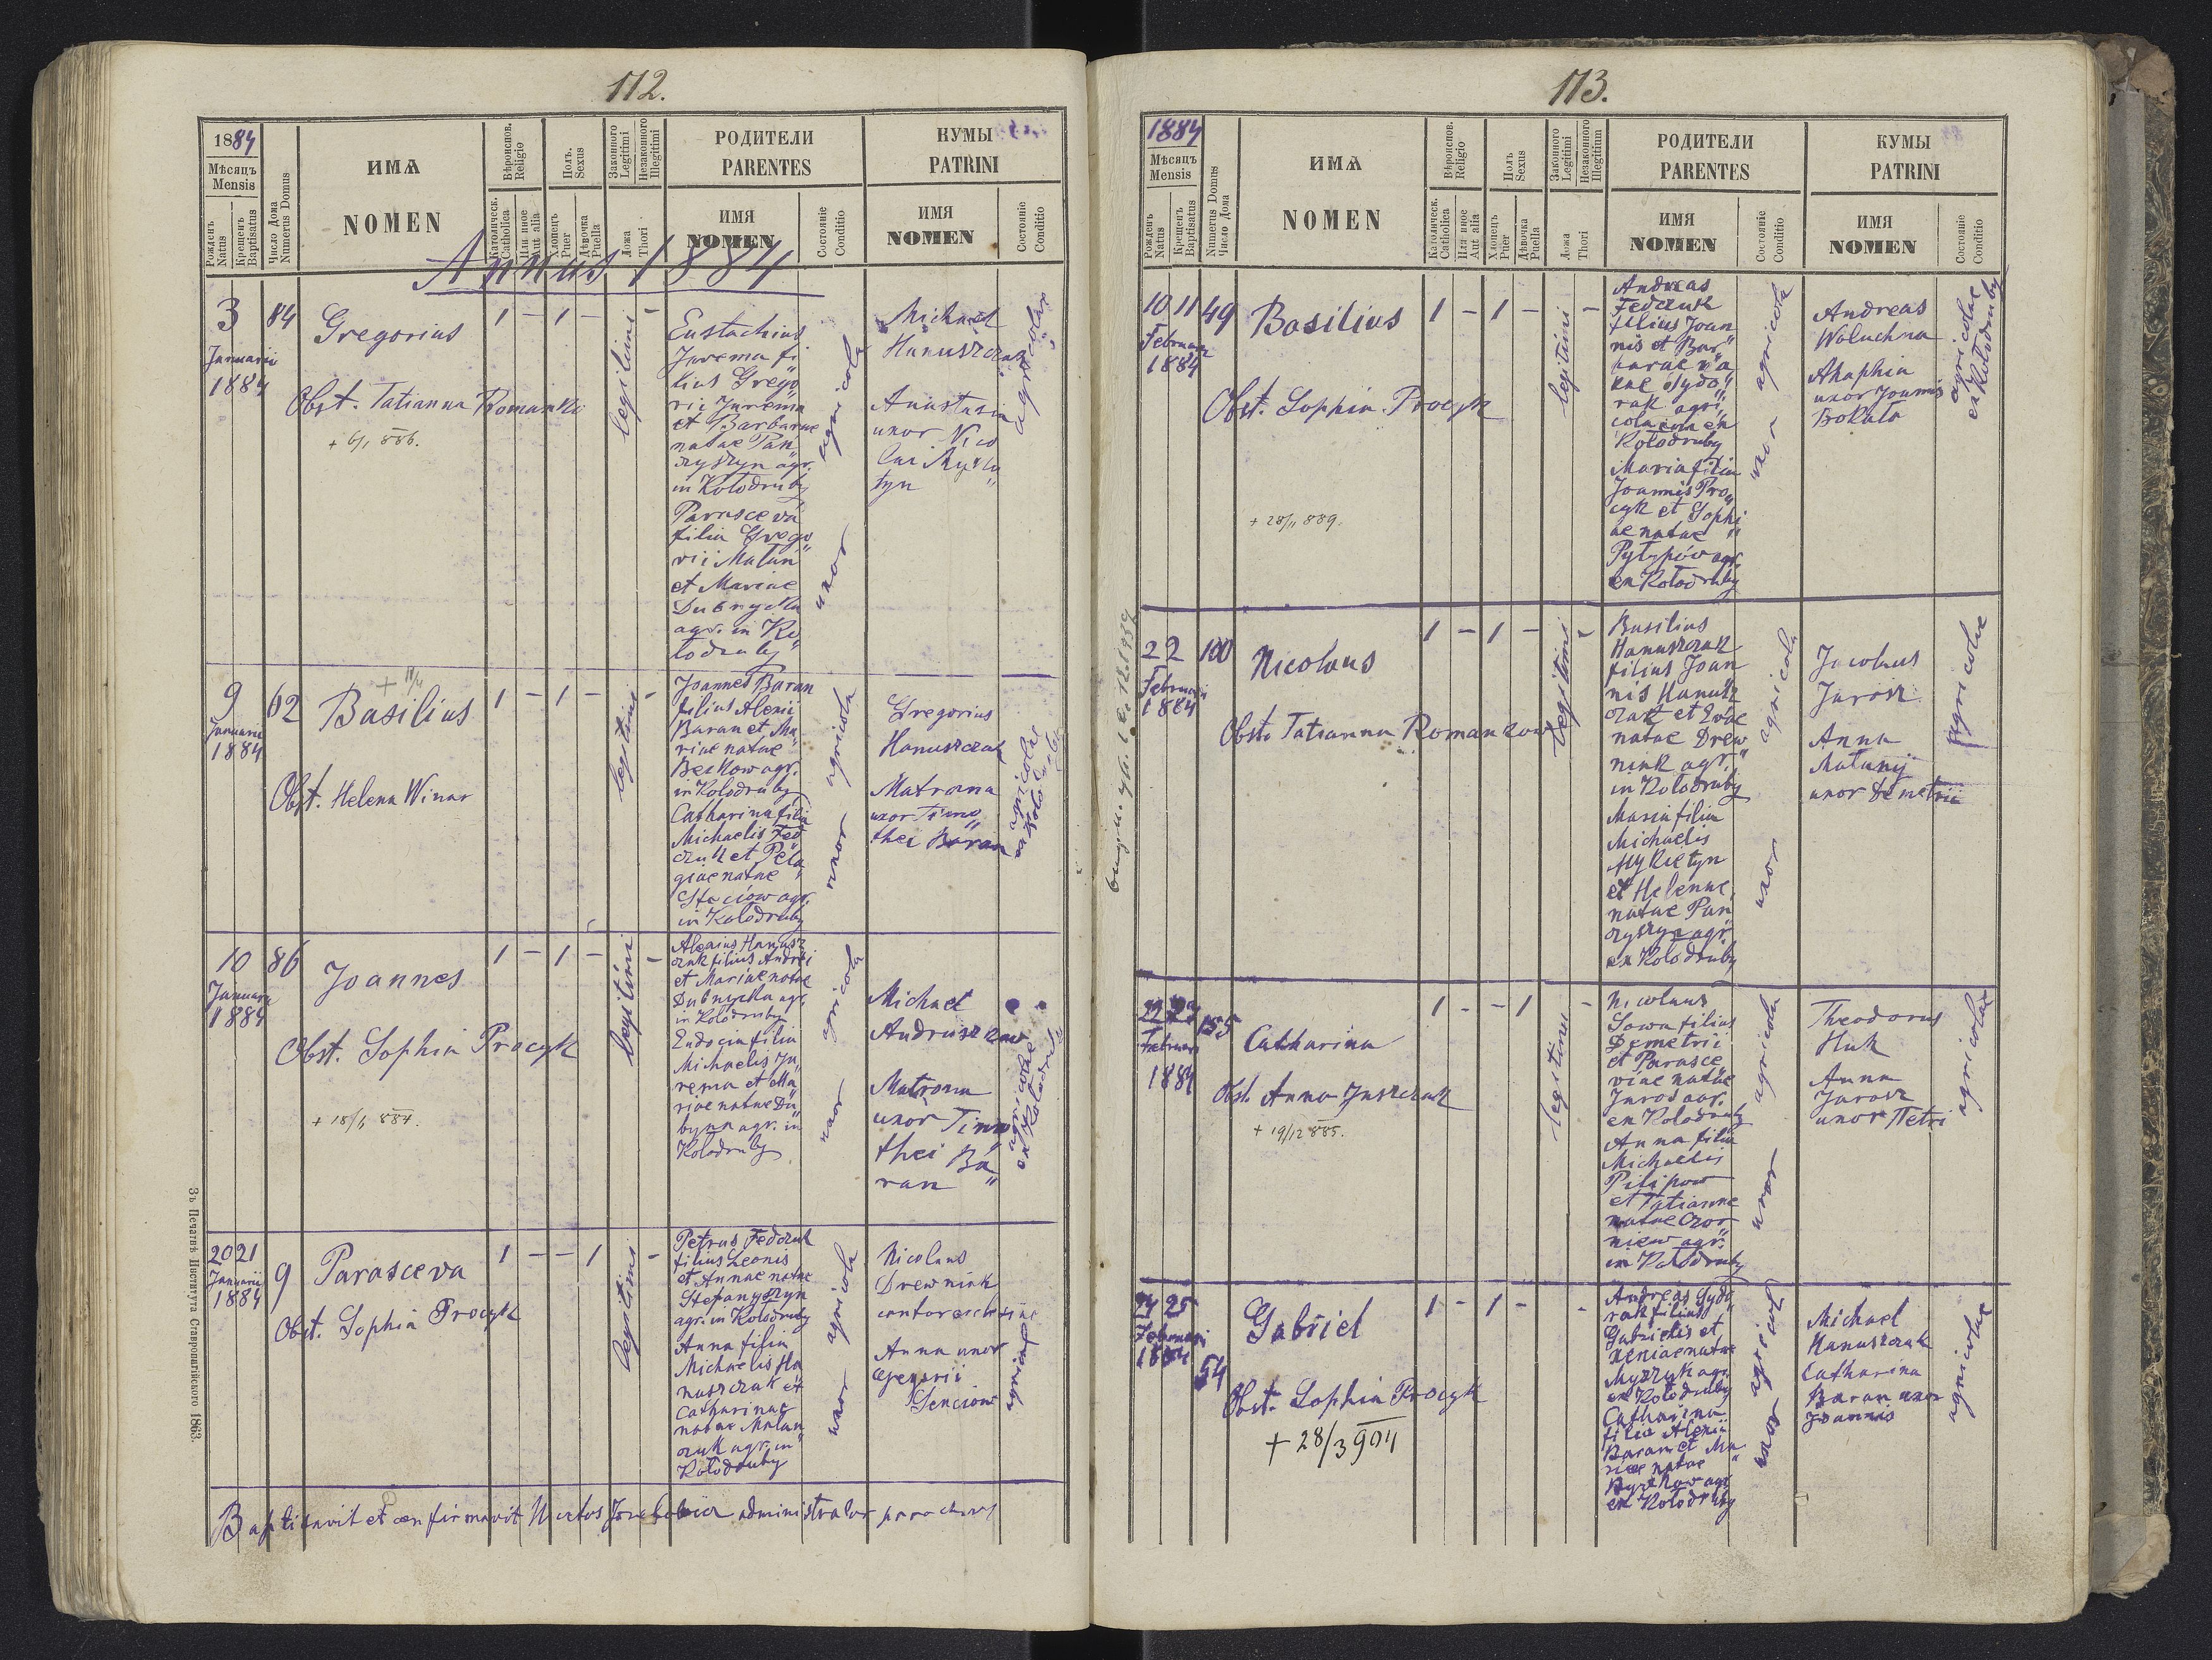 112.
1884
Мѣсяцъ
Mensis
Рожденъ
Natus
Крещенъ
Baptisatus
Число Дома
Numerus Domus
ИМѦ
NOMEN
Вѣроиспов.
Religio
Католическ.
Catholica
Или иное
Aut alia
Полъ.
Sexus
Хлопецъ
Puer
Дѣвочка
Puella
Законного
Legitimi
Незаконного
Illegitimi
Ложа
Thori
РОДИТЕЛИ
PARENTES
ИМЯ
NOMEN
Состояніе
Conditio
КУМЫ
PATRINI
ИМЯ
NOMEN
Состояніе
Conditio
Annus 1884
3
Januarii
1884
84
Gregorius
Obst. Tatianna Romanko
+ 6/1 886.
1 - 1 - -
legitimi
Eustachius
Jarema fi
lius Grego
rii Jarema
et Barbarae
natae Pan
czyszyn agr.
in Kołodruby
Parasceva
filia Grego
rii Matan
et Mariae
Dubnycka
agr. in Ko
łodruby
agricola
uxor
Michael
Hanuszczak
Anastasia
uxor Nico
lai Myky
tyn
agricolae
9
Januarii
1884
62
+ 11/4
Basilius
Obst. Helena Winar
1 - 1 - -
legitimi
Joannes Baran
filius Alexii
Baran et Ma
riae natae
Beskow agr.
in Kołodruby
Catharina filia
Michaelis Fed
czuk et Pela
giae natae
Steciów agr.
in Kołodruby
agricola
uxor
Gregorius
Hanuszczak
Matrona
uxor Timo
thei Baran
agricolae
10
Januarii
1884
86
Joannes
Obst. Sophia Procyk
+ 18/1 884.
1 - 1 - -
legitimi
Alexius Hanusz
czak filius Andrei
et Mariae natae
Dubnycka agr.
in Kołodruby
Eudocia filia
Michaelis Ja
rema et Ma
riae natae Du
byna agr. in
Kołodruby
agricola
uxor
Michael
Andruszczow
Matrona
uxor Timo
thei Ba
ran
agricolae
ex Kołodruby
20 21
Januarii
1884
9
Parasceva
Obst. Sophia Procyk
1 - - 1 -
legitimi
Petrus Fedczuk
filius Leonis
et Annae natae
Stefanyszyn
agr. in Kołodruby
Anna filia
Michaelis Ha
nuszczak et
Catharinae
natae Matan
czuk agr. in
Kołodruby
agricola
uxor
Nicolaus
Drewniak
cantor ecclesiae
Anna uxor
Gregorii
Sencion
Baptisavit et confirmavit administrator parochus
Зъ Печатнѣ Института Ставропигійского 1863.
113.
1884
Мѣсяцъ
Mensis
Рожденъ
Natus
Крещенъ
Baptisatus
Numerus Domus
Число Дома
ИМѦ
NOMEN
Вѣроиспов.
Religio
Католическ.
Catholica
Или иное
Aut alia
Полъ
Sexus
Хлопецъ
Puer
Дѣвочка
Puella
Законного
Legitimi
Незаконного
Illegitimum
Ложа
Thori
РОДИТЕЛИ
PARENTES
ИМЯ
NOMEN
Состояніе
Conditio
КУМЫ
PATRINI
ИМЯ
NOMEN
Состояніе
Conditio
10 11
Februar
1884
49
Basilius
Obst. Sophia Procyk
+ 28/11 889.
1 - 1 - -
legitimi
Andreas
Fedczuk
filius Joan
nis et Bar
barae na
tae Sydo
rak agri
cola ex
Kołodruby
Maria filia
Joannis Pro
cyk et Sophi
ae natae
Pyłypów agr.
ex Kołodruby
agricola
uxor
Andreas
Woluchna
Ahaphia
uxor Joannis
Bokało
agricolae
ex Kołodruby
22
Februari
1884
100
Nicolaus
Obst. Tatianna Romankow
1 - 1 - -
legitimi
Basilius
Hanuszczak
filius Joan
nis Hanusz
czak et Evae
natae Drew
niak agr.
in Kołodruby
Maria filia
Michaelis
Mykietyn
et Helenae
natae Pan
czyszyn agr.
ex Kołodruby
agricola
uxor
Jacobus
Jarosz
Anna
Matanij
uxor Demetrii
agricolae
22 23
Februar
1884
155
Catharina
Obst. Anna Juszczak
+ 19/12 885.
1 - - 1 -
legitimi
Nicolaus
Sowa filius
Demetrii
et Parasce
viae natae
Jaros agr.
ex Kołodruby
Anna filia
Michaelis
Pilipow
et Tatianne
natae Czor
niew agr.
in Kołodruby
agricola
uxor
Theodorus
Huk
Anna
Jarosz
uxor Petri
agricolae
24 25
Februari
1884
54
Gabriel
Obst. Sophia Procyk
+ 28/3 904
1 - 1 - -
Andreas Sydo
rak filius
Gabrielis et
Xeniae natae
Myszyk agr.
ex Kołodruby
Catharina
filia Alexii
Baran et Ma
riae natae
agr.
ex Kołodruby
agricola
uxor
Michael
Hanuszczak
Catharina
Baran uxor
Joannis
agricolae